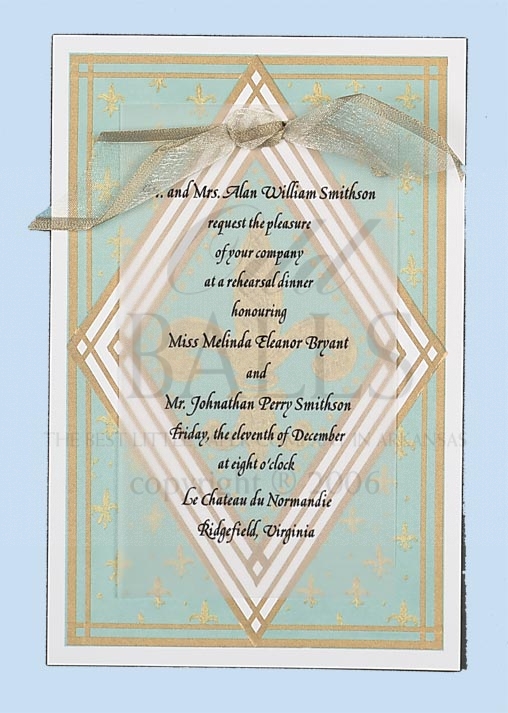 .. and Mrs. Alan William Smithson
request the pleasure
of your company
at a rehearsal dinner
honouring
Miss Melinda Eleanor Bryant
and
Mr. Johnathan Perry Smithson
Friday, the eleventh of December
at eight o'clock
Le Chateau du Normandie
Ridgefield, Virginia
BALLS
THE BEST LITTLE IN ARKANSAS
copyright ® 2006